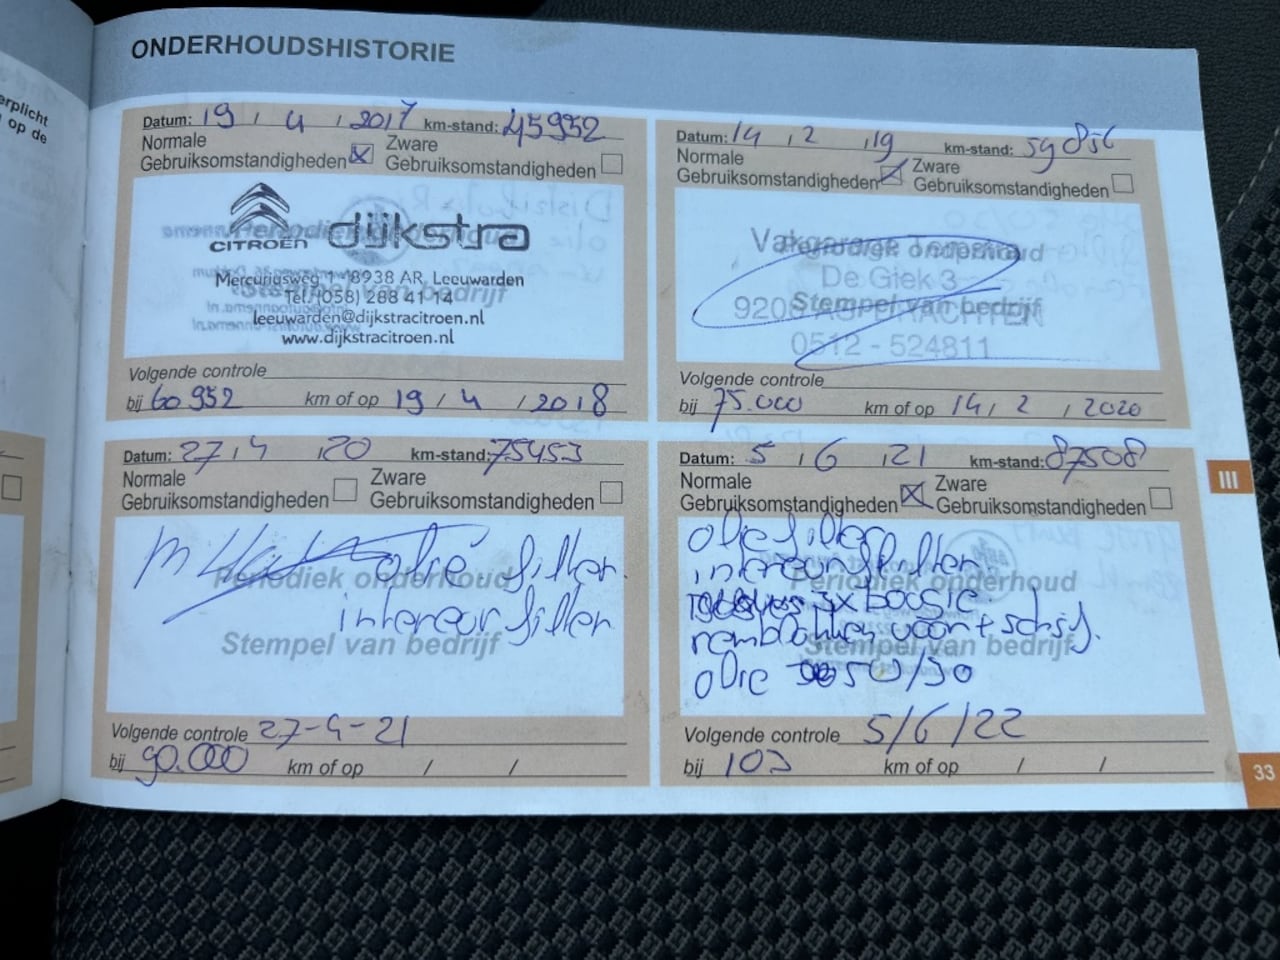 erplicht
op de
ONDERHOUDSHISTORIE
Datum: 19 / 4 / 2017 km-stand: 45952
Normale Gebruiksomstandigheden Zware Gebruiksomstandigheden
CITROËN dijkstra
Mercuriusweg 1 8938 AR, Leeuwarden
Tel. (058) 288 41 14
leeuwarden@dijkstracitroen.nl
www.dijkstracitroen.nl
Volgende controle
bij 60952 km of op 19 / 4 / 2018
Datum: 14 , 2 , 19 km-stand: 59856
Normale Gebruiksomstandigheden Zware Gebruiksomstandigheden
Vakgarage
Periodiek onderhoud
De Giek 3
Stempel van bedrijf
DRACHTEN
0512 - 524811
Volgende controle
bij 75.000 km of op 14 / 2 , 2020
Datum: 27 , 4 , 20 km-stand: 75453
Normale Gebruiksomstandigheden Zware Gebruiksomstandigheden
olie filter.
Periodiek onderhoud
intereur filter
Stempel van bedrijf
Volgende controle 27-4-21
bij 90.000 km of op / /
Datum: 5 , 6 , 21 km-stand: 87508
Normale Gebruiksomstandigheden Zware Gebruiksomstandigheden
oliefilter
intereurfilter
Periodiek onderhoud
3x bougie
remblokken voor + schijf.
Stempel van bedrijf
olie 50/30
Volgende controle 5/6/22
bij 103 km of op / /
III
33